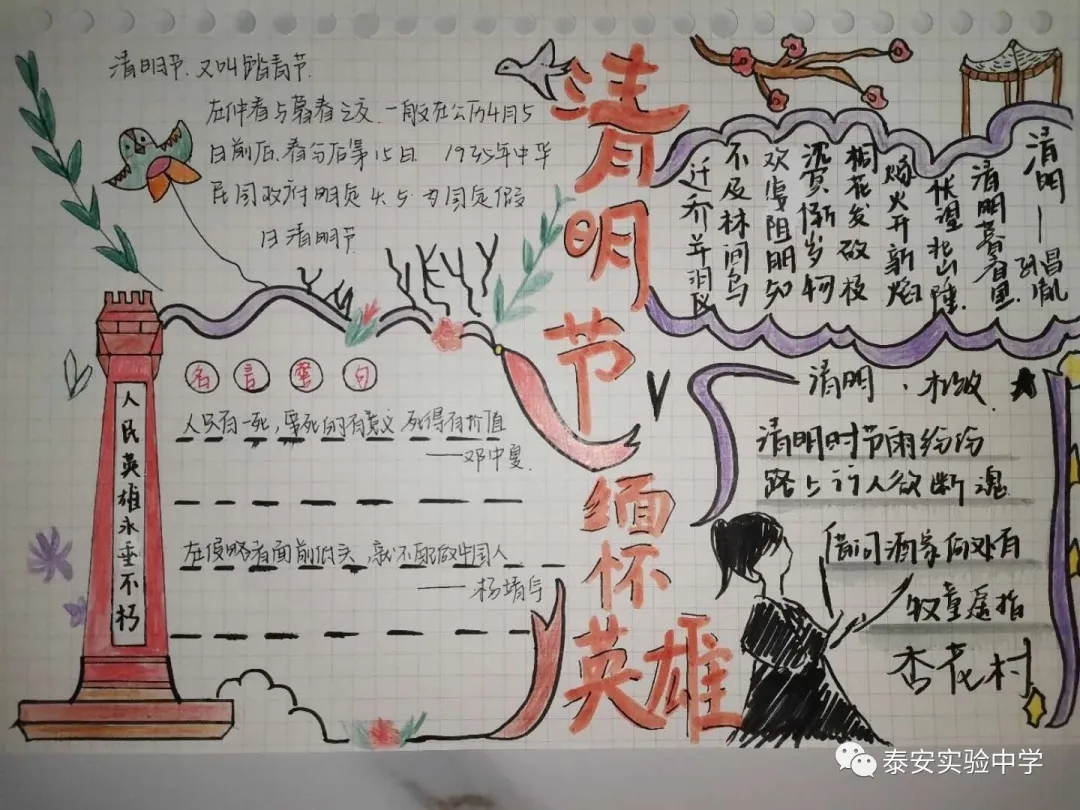 清明节.又叫踏青节.
在仲春与暮春之交.一般在公历4月5
日前后、春分后第15日. 1935年中华
民国政府明定4.5.为国定假
日清明节
清明节
缅怀
英雄
清明——孙昌胤
清明暮春里
怅望北山陲.
燧火开新焰
桐花发故枝
沉冥惭岁物
欢 阻朋知
不及林间鸟
迁乔并羽
名言警句
人只有一死,要死的有意义 死得有价值
——邓中夏.
在侵略者面前低头,就不配做中国人.
——杨靖宇
人民英雄永垂不朽
清明.杜牧.
清明时节雨纷纷
路上行人欲断魂
借问酒家何处有
牧童遥指
杏花村
泰安实验中学